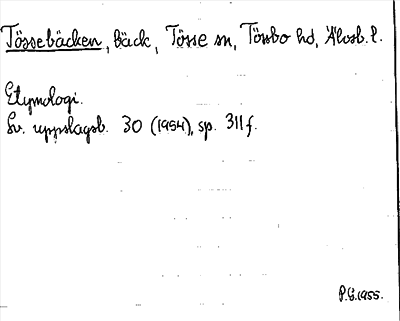 Tössebäcken, bäck, Tösse sn, Tössbo hd, Älvsb. l.
Etymologi.
Sv. uppslagsb. 30 (1954), sp. 311 f.
P.G.1955.